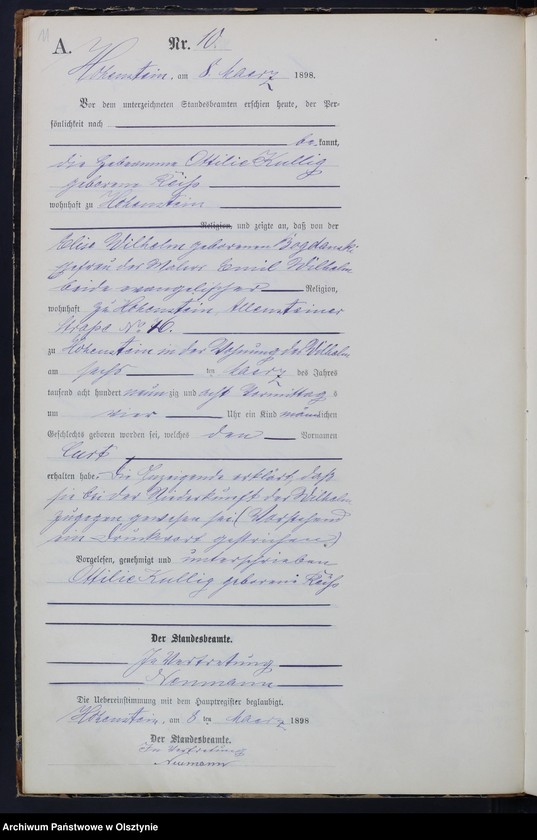 11
A. Nr. 10.
Hohenstein, am 8. Maerz 1898.
Vor dem unterzeichneten Standesbeamten erschien heute, der Per-
sönlichkeit nach
be kannt,
die Hebeamme Ottilie Kullig
geborene Reiß
wohnhaft zu Hohenstein
Religion, und zeigte an, daß von der
Elise Wilhelm geborenen Bogdanski
Ehefrau des Malers Emil Wilhelm
beide evangelischer Religion,
wohnhaft zu Hohenstein, Allensteiner
Straße No.
zu Hohenstein in der Wohnung des Wilhelm
am sechs ten Maerz des Jahres
tausend acht hundert neun zig und acht Vormittag s
um vier Uhr ein Kind männlichen
Geschlechts geboren worden sei, welches den Vornamen
Curt
erhalten habe. Die Anzeigende erklärt, daß
sie bei der Niederkunft der Wilhelm
zugegen gewesen sei (Vorstehend
ein Druckwort gestrichen)
Vorgelesen, genehmigt und unterschrieben
Ottilie Kullig geborene Reiß
Der Standesbeamte.
In Vertretung
Neumann
Die Uebereinstimmung mit dem Hauptregister beglaubigt.
Hohenstein, am 8 ten Maerz 1898
Der Standesbeamte.
In Vertretung
Neumann
Archiwum Państwowe w Olsztynie